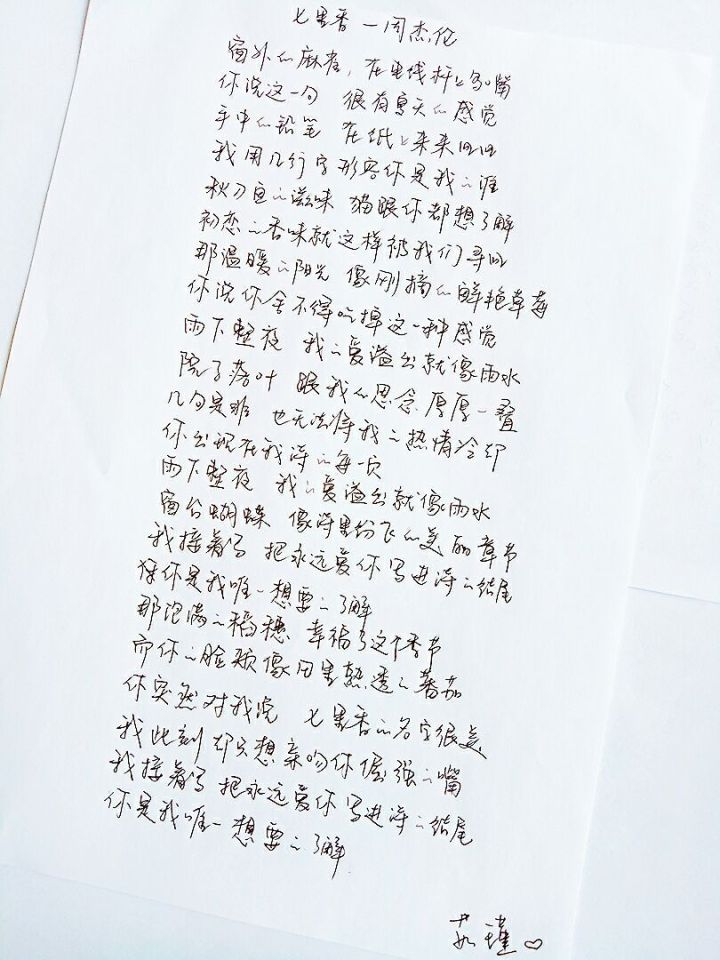 七里香—周杰伦
窗外的麻雀，在电线杆上多嘴
你说这一句 很有夏天的感觉
手中的铅笔 在纸上来来回回
我用几行字形容你是我的谁
秋刀鱼的滋味 猫跟你都想了解
初恋的香味就这样被我们寻回
那温暖的阳光 像刚摘的鲜艳草莓
你说你舍不得吃掉这一种感觉
雨下整夜 我的爱溢出就像雨水
院子落叶 跟我的思念厚厚一叠
几句是非 也无法将我的热情冷却
你出现在我诗的每一页
雨下整夜 我的爱溢出就像雨水
窗台蝴蝶 像诗里纷飞的美丽章节
我接着写 把永远爱你写进诗的结尾
你是我唯一想要的了解
那饱满的稻穗 幸福了这个季节
而你的脸颊像田里熟透的番茄
你突然对我说 七里香的名字很美
我此刻却只想亲吻你倔强的嘴
我接着写 把永远爱你写进诗的结尾
你是我唯一想要的了解
若瑾♡